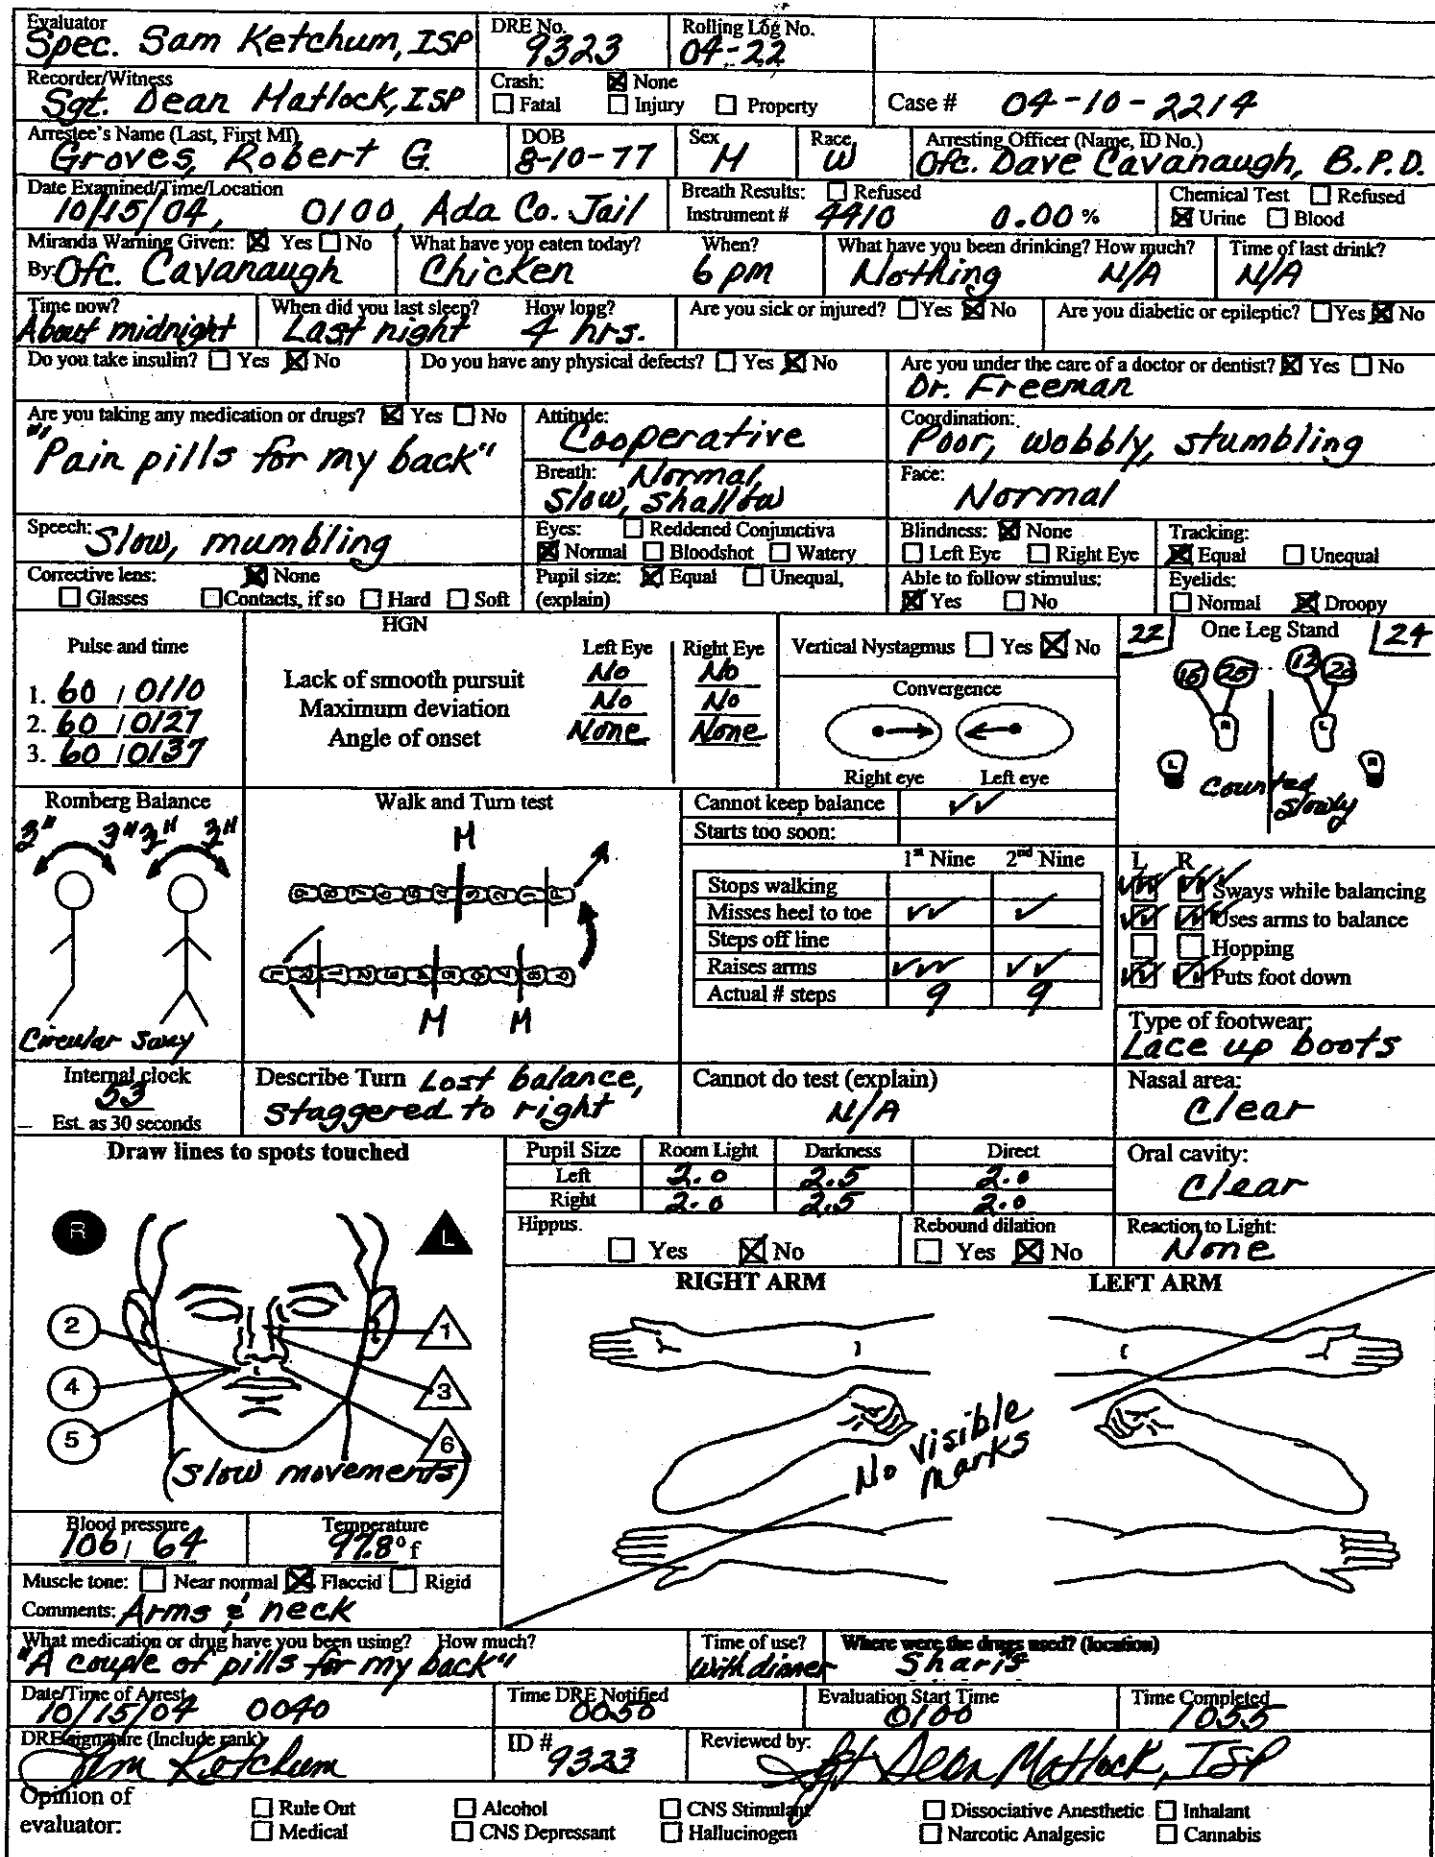 Evaluator
Spec. Sam Ketchum, ISP
DRE No.
9323
Rolling Log No.
04-22
Recorder/Witness
Sgt. Dean Matlock, ISP
Crash: ☒ None
☐ Fatal ☐ Injury ☐ Property
Case # 04-10-2214
Arrestee's Name (Last, First MI)
Groves, Robert G.
DOB
8-10-77
Sex
M
Race
W
Arresting Officer (Name, ID No.)
Ofc. Dave Cavanaugh, B.P.D.
Date Examined/Time/Location
10/15/04, 0100, Ada Co. Jail
Breath Results: ☐ Refused
Instrument # 4410 0.00 %
Chemical Test ☐ Refused
☒ Urine ☐ Blood
Miranda Warning Given: ☒ Yes ☐ No
By: Ofc. Cavanaugh
What have you eaten today? When?
Chicken 6 pm
What have you been drinking? How much?
Nothing N/A
Time of last drink?
N/A
Time now?
About midnight
When did you last sleep? How long?
Last night 4 hrs.
Are you sick or injured? ☐ Yes ☒ No
Are you diabetic or epileptic? ☐ Yes ☒ No
Do you take insulin? ☐ Yes ☒ No
Do you have any physical defects? ☐ Yes ☒ No
Are you under the care of a doctor or dentist? ☒ Yes ☐ No
Dr. Freeman
Are you taking any medication or drugs? ☒ Yes ☐ No
"Pain pills for my back"
Attitude:
Cooperative
Coordination:
Poor, wobbly, stumbling
Breath: Normal,
slow, shallow
Face:
Normal
Speech: Slow, mumbling
Eyes: ☐ Reddened Conjunctiva
☒ Normal ☐ Bloodshot ☐ Watery
Blindness: ☒ None
☐ Left Eye ☐ Right Eye
Tracking:
☒ Equal ☐ Unequal
Corrective lens: ☒ None
☐ Glasses ☐ Contacts, if so ☐ Hard ☐ Soft
Pupil size: ☒ Equal ☐ Unequal,
(explain)
Able to follow stimulus:
☒ Yes ☐ No
Eyelids:
☐ Normal ☒ Droopy
Pulse and time
1. 60 / 0110
2. 60 / 0127
3. 60 / 0137
HGN
Left Eye Right Eye
Lack of smooth pursuit No No
Maximum deviation No No
Angle of onset None None
Vertical Nystagmus ☐ Yes ☒ No
Convergence
Right eye Left eye
22 One Leg Stand 24
R L
L R
Counted
slowly
Romberg Balance
3" 3" 3" 3"
Circular sway
Walk and Turn test
M
M M
Cannot keep balance ✓✓
Starts too soon:
1st Nine 2nd Nine
Stops walking
Misses heel to toe ✓✓ ✓
Steps off line
Raises arms ✓✓✓ ✓✓
Actual # steps 9 9
L R
Sways while balancing
Uses arms to balance
☐ ☐ Hopping
Puts foot down
Type of footwear:
Lace up boots
Internal clock
53
Est. as 30 seconds
Describe Turn Lost balance,
staggered to right
Cannot do test (explain)
N/A
Nasal area:
Clear
Draw lines to spots touched
R L
2 1
4 3
5 6
(Slow movements)
Pupil Size Room Light Darkness Direct
Left 2.0 2.5 2.0
Right 2.0 2.5 2.0
Oral cavity:
Clear
Hippus.
☐ Yes ☒ No
Rebound dilation
☐ Yes ☒ No
Reaction to Light:
None
RIGHT ARM LEFT ARM
No visible
marks
Blood pressure
106 / 64
Temperature
97.8° f
Muscle tone: ☐ Near normal ☒ Flaccid ☐ Rigid
Comments: Arms & neck
What medication or drug have you been using? How much?
"A couple of pills for my back"
Time of use?
with dinner
Where were the drugs used? (location)
Shari's
Date/Time of Arrest
10/15/04 0040
Time DRE Notified
0050
Evaluation Start Time
0100
Time Completed
1055
DRE signature (Include rank)
Sam Ketchum
ID #
9323
Reviewed by:
Sgt Dean Matlock, ISP
Opinion of
evaluator:
☐ Rule Out ☐ Alcohol ☐ CNS Stimulant ☐ Dissociative Anesthetic ☐ Inhalant
☐ Medical ☐ CNS Depressant ☐ Hallucinogen ☐ Narcotic Analgesic ☐ Cannabis